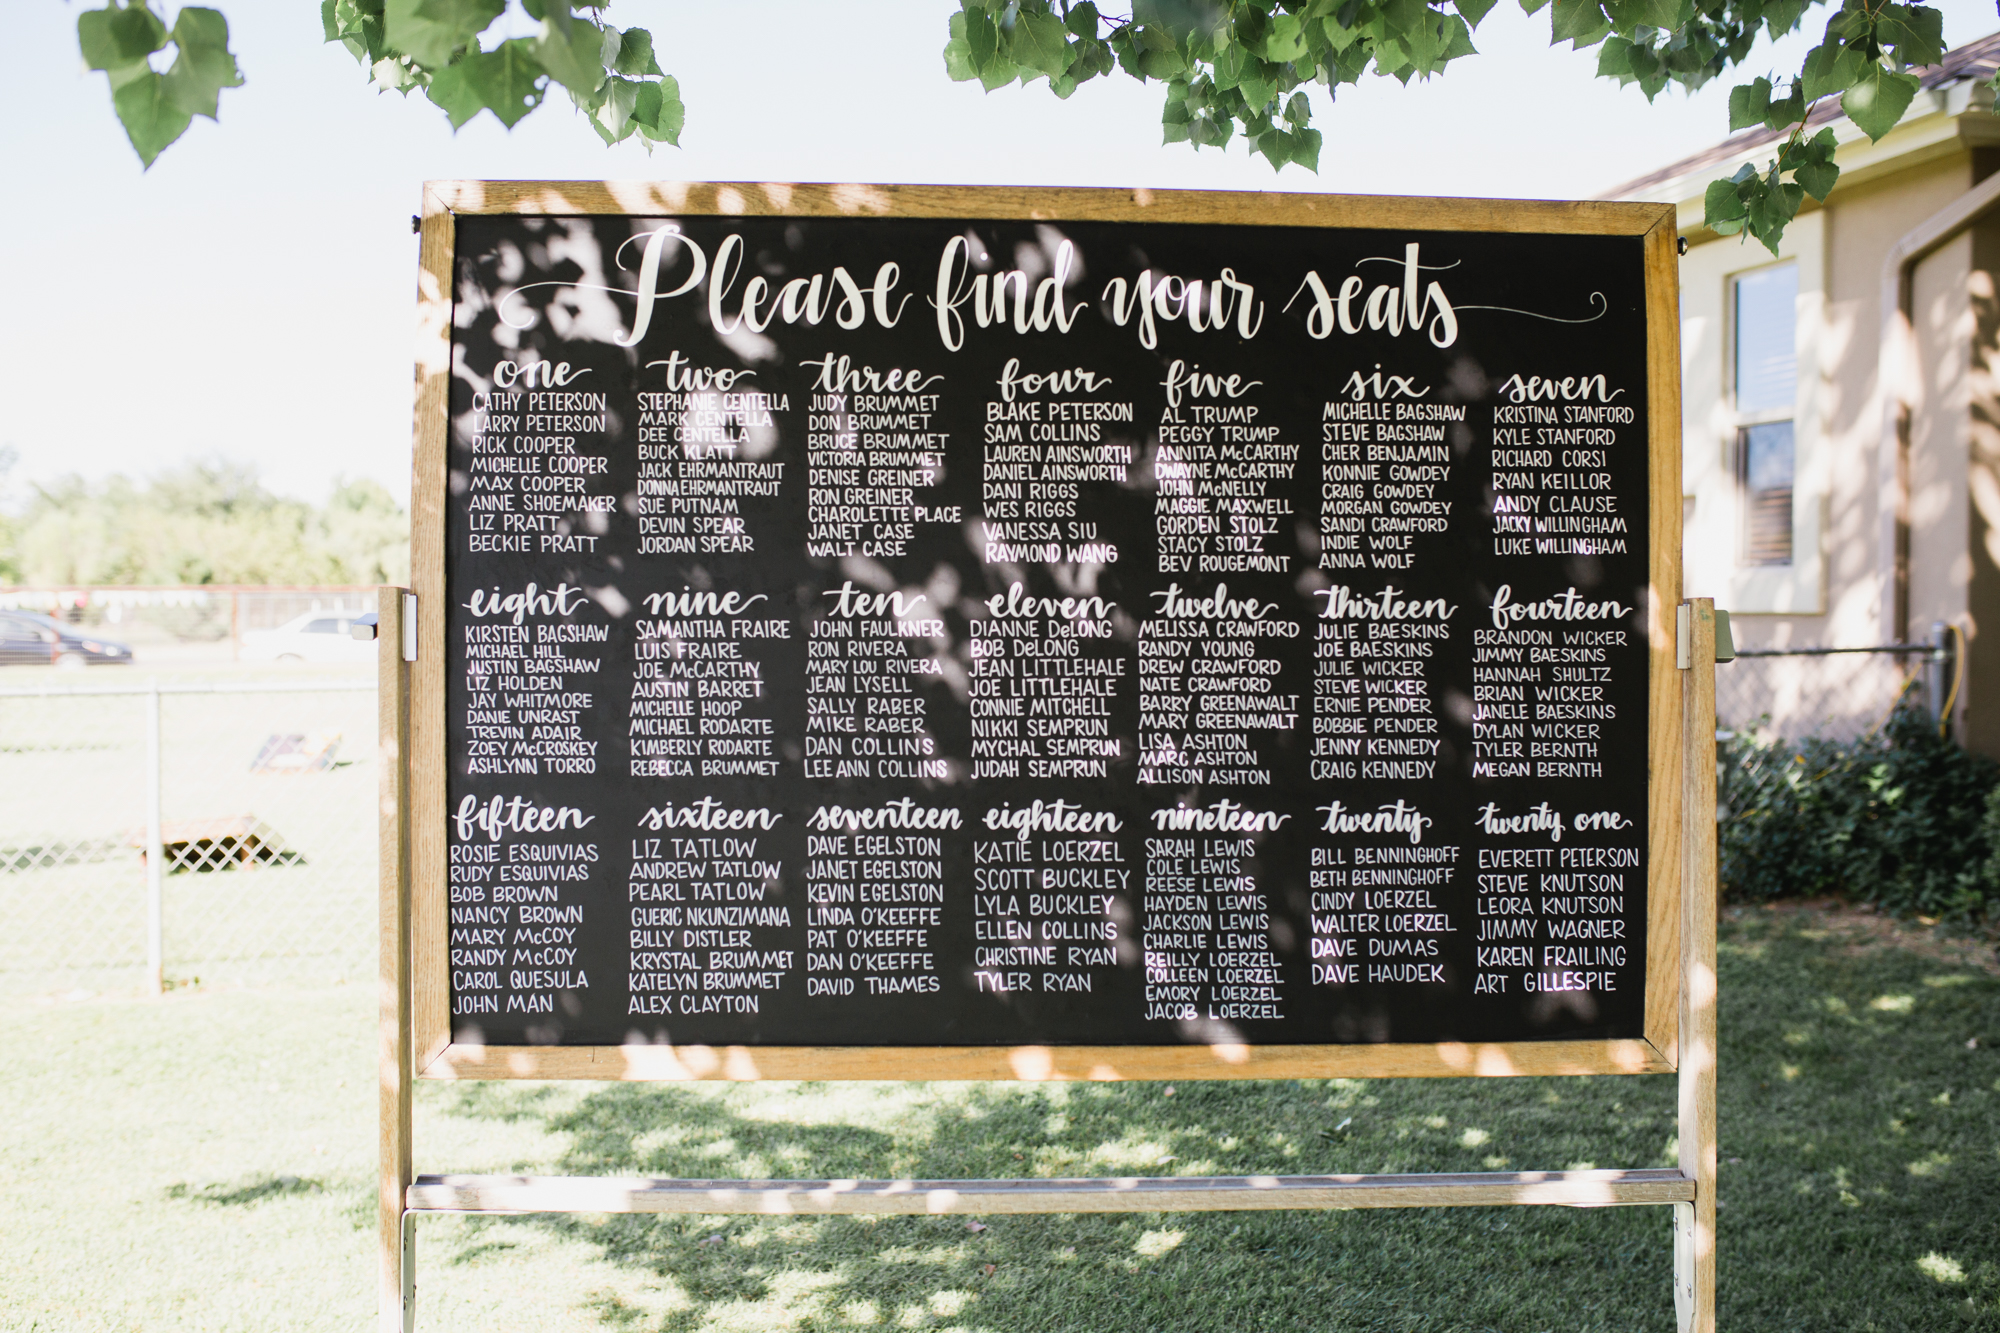 Please find your seats
one
CATHY PETERSON
LARRY PETERSON
RICK COOPER
MICHELLE COOPER
MAX COOPER
ANNE SHOEMAKER
LIZ PRATT
BECKIE PRATT
two
STEPHANIE CENTELLA
MARK CENTELLA
DEE CENTELLA
BUCK KLATT
JACK EHRMANTRAUT
DONNA EHRMANTRAUT
SUE PUTNAM
DEVIN SPEAR
JORDAN SPEAR
three
JUDY BRUMMET
DON BRUMMET
BRUCE BRUMMET
VICTORIA BRUMMET
DENISE GREINER
RON GREINER
CHAROLETTE PLACE
JANET CASE
WALT CASE
four
BLAKE PETERSON
SAM COLLINS
LAUREN AINSWORTH
DANIEL AINSWORTH
DANI RIGGS
WES RIGGS
VANESSA SIU
RAYMOND WANG
five
AL TRUMP
PEGGY TRUMP
ANNITA McCARTHY
DWAYNE McCARTHY
JOHN McNELLY
MAGGIE MAXWELL
GORDEN STOLZ
STACY STOLZ
BEV ROUGEMONT
six
MICHELLE BAGSHAW
STEVE BAGSHAW
CHER BENJAMIN
KONNIE GOWDEY
CRAIG GOWDEY
MORGAN GOWDEY
SANDI CRAWFORD
INDIE WOLF
ANNA WOLF
seven
KRISTINA STANFORD
KYLE STANFORD
RICHARD CORSI
RYAN KEILLOR
ANDY CLAUSE
JACKY WILLINGHAM
LUKE WILLINGHAM
eight
KIRSTEN BAGSHAW
MICHAEL HILL
JUSTIN BAGSHAW
LIZ HOLDEN
JAY WHITMORE
DANIE UNRAST
TREVIN ADAIR
ZOEY McCROSKEY
ASHLYNN TORRO
nine
SAMANTHA FRAIRE
LUIS FRAIRE
JOE McCARTHY
AUSTIN BARRET
MICHELLE HOOP
MICHAEL RODARTE
KIMBERLY RODARTE
REBECCA BRUMMET
ten
JOHN FAULKNER
RON RIVERA
MARY LOU RIVERA
JEAN LYSELL
SALLY RABER
MIKE RABER
DAN COLLINS
LEE ANN COLLINS
eleven
DIANNE DeLONG
BOB DeLONG
JEAN LITTLEHALE
JOE LITTLEHALE
CONNIE MITCHELL
NIKKI SEMPRUN
MYCHAL SEMPRUN
JUDAH SEMPRUN
twelve
MELISSA CRAWFORD
RANDY YOUNG
DREW CRAWFORD
NATE CRAWFORD
BARRY GREENAWALT
MARY GREENAWALT
LISA ASHTON
MARC ASHTON
ALLISON ASHTON
thirteen
JULIE BAESKINS
JOE BAESKINS
JULIE WICKER
STEVE WICKER
ERNIE PENDER
BOBBIE PENDER
JENNY KENNEDY
CRAIG KENNEDY
fourteen
BRANDON WICKER
JIMMY BAESKINS
HANNAH SHULTZ
BRIAN WICKER
JANELE BAESKINS
DYLAN WICKER
TYLER BERNTH
MEGAN BERNTH
fifteen
ROSIE ESQUIVIAS
RUDY ESQUIVIAS
BOB BROWN
NANCY BROWN
MARY McCOY
RANDY McCOY
CAROL QUESULA
JOHN MAN
sixteen
LIZ TATLOW
ANDREW TATLOW
PEARL TATLOW
GUERIC NKUNZIMANA
BILLY DISTLER
KRYSTAL BRUMMET
KATELYN BRUMMET
ALEX CLAYTON
seventeen
DAVE EGELSTON
JANET EGELSTON
KEVIN EGELSTON
LINDA O'KEEFFE
PAT O'KEEFFE
DAN O'KEEFFE
DAVID THAMES
eighteen
KATIE LOERZEL
SCOTT BUCKLEY
LYLA BUCKLEY
ELLEN COLLINS
CHRISTINE RYAN
TYLER RYAN
nineteen
SARAH LEWIS
COLE LEWIS
REESE LEWIS
HAYDEN LEWIS
JACKSON LEWIS
CHARLIE LEWIS
REILLY LOERZEL
COLLEEN LOERZEL
EMORY LOERZEL
JACOB LOERZEL
twenty
BILL BENNINGHOFF
BETH BENNINGHOFF
CINDY LOERZEL
WALTER LOERZEL
DAVE DUMAS
DAVE HAUDEK
twenty one
EVERETT PETERSON
STEVE KNUTSON
LEORA KNUTSON
JIMMY WAGNER
KAREN FRAILING
ART GILLESPIE